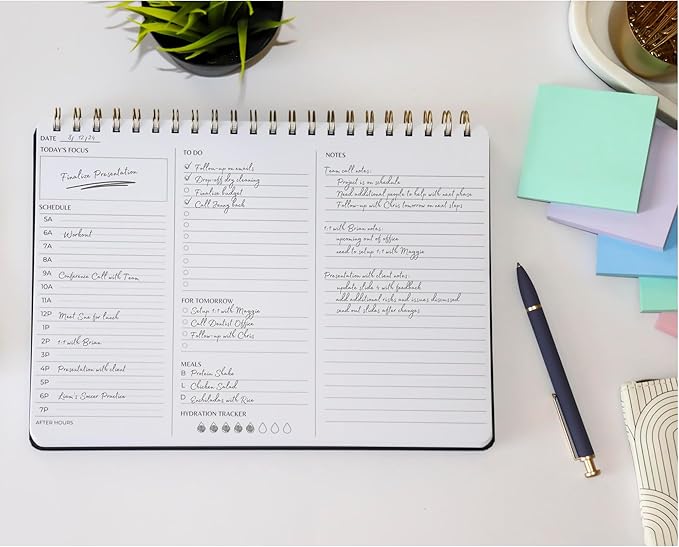 DATE 3/12/24
TODAY'S FOCUS
Finalize Presentation
SCHEDULE
5A
6A Workout
7A
8A
9A Conference Call with Team
10A
11A
12P Meet Sue for lunch
1P
2P 1:1 with Brian
3P
4P Presentation with client
5P
6P Liam's Soccer Practice
7P
AFTER HOURS
TO DO
Follow-up on emails
Drop-off dry cleaning
Finalize budget
Call Jenny back
FOR TOMORROW
Setup 1:1 with Maggie
Call Dentist Office
Follow-up with Chris
MEALS
B Protein Shake
L Chicken Salad
D Enchiladas with Rice
HYDRATION TRACKER
NOTES
Team call notes:
Project is on schedule
Need additional people to help with next phase
Follow-up with Chris tomorrow on next steps
1:1 with Brian notes:
upcoming out of office
need to setup 1:1 with Maggie
Presentation with client notes:
update slide 4 with feedback
add additional risks and issues discussed
send out slides after changes